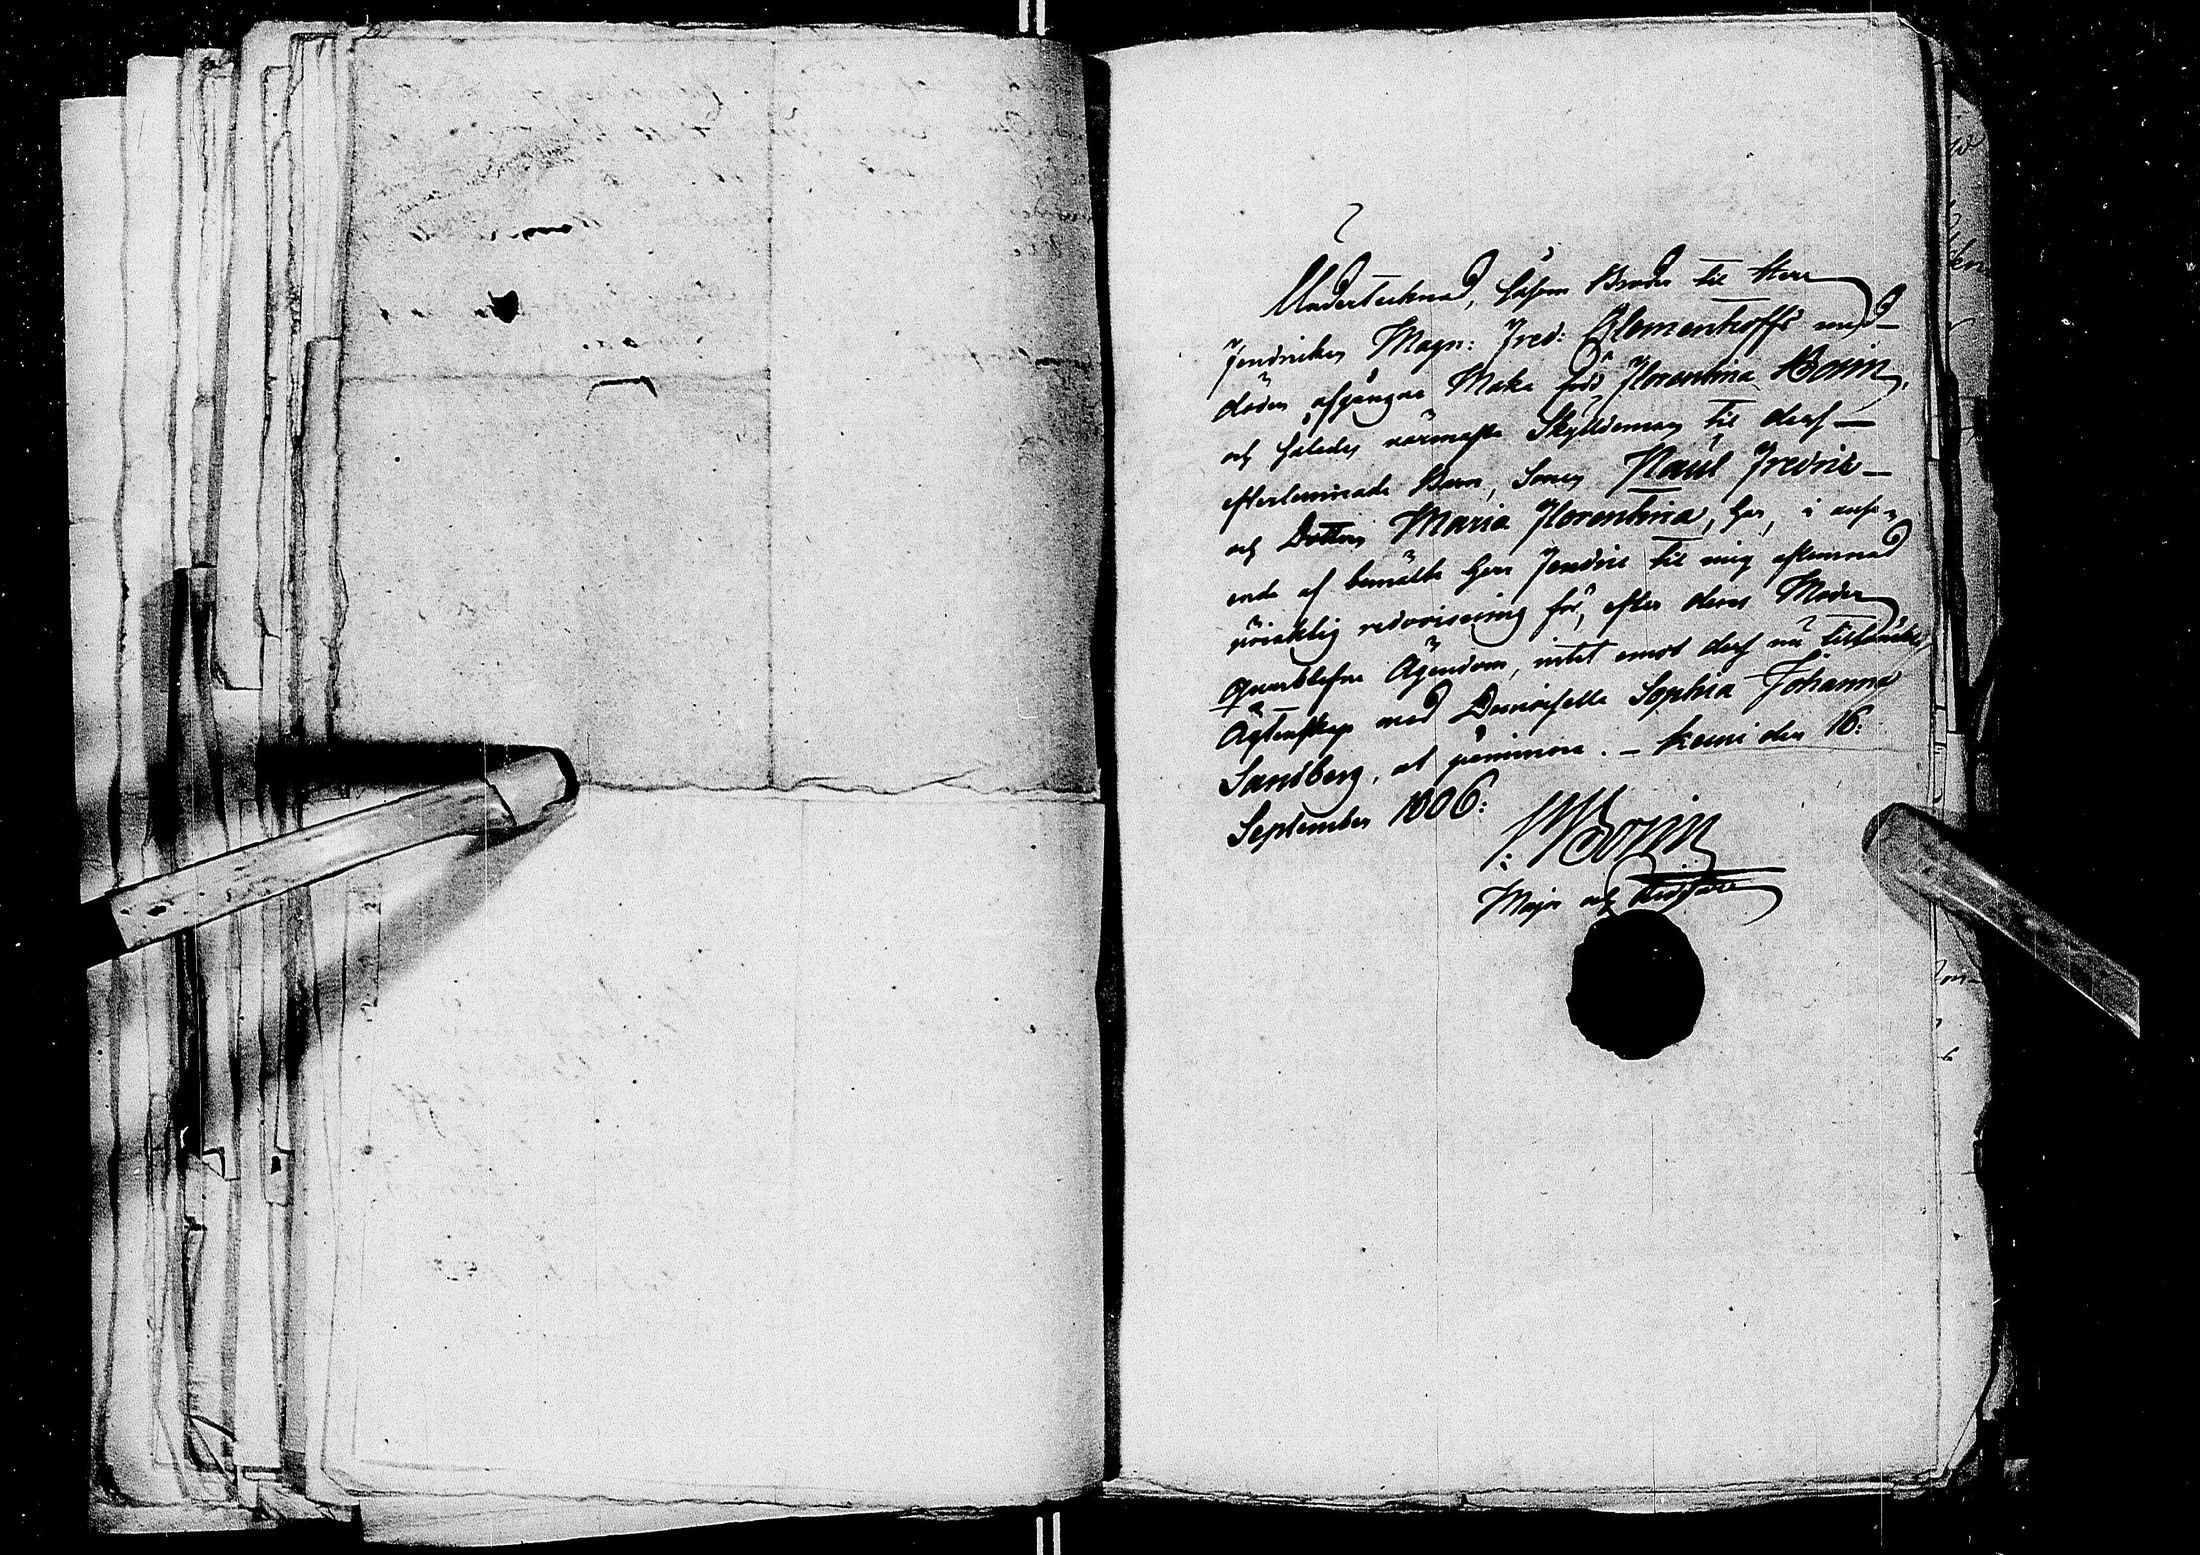 Undertecknad, såsom Broder til Herr
Fendriken Magn: Fred: Clementeoffs med
döden afgångne Maka född Florentina Bonin,
och således närmaste Skyldeman til dess
efterlemnade Barn, Sonen Paul Fredric
och Dottren Maria Florentina, har, i anse-
ende af bemälte Herr Fendric til mig aflemnad
redovisning för, efter dess Moder
quarblefne Ägendom, intet emot dess nu
Ägtenskap med Demoiselle Sophia Johanna
Sandberg, at påminna. – Kemi den 16:
September 1806:
Bonin
Major och Riddare